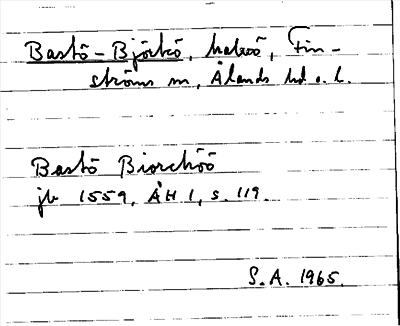 Bastö-Björkö, holme, Fin-
ströms sn, Ålands hd o. l.
Bastö Biorchöö
jb 1559, ÅH 1, s. 119.
S.A. 1965.